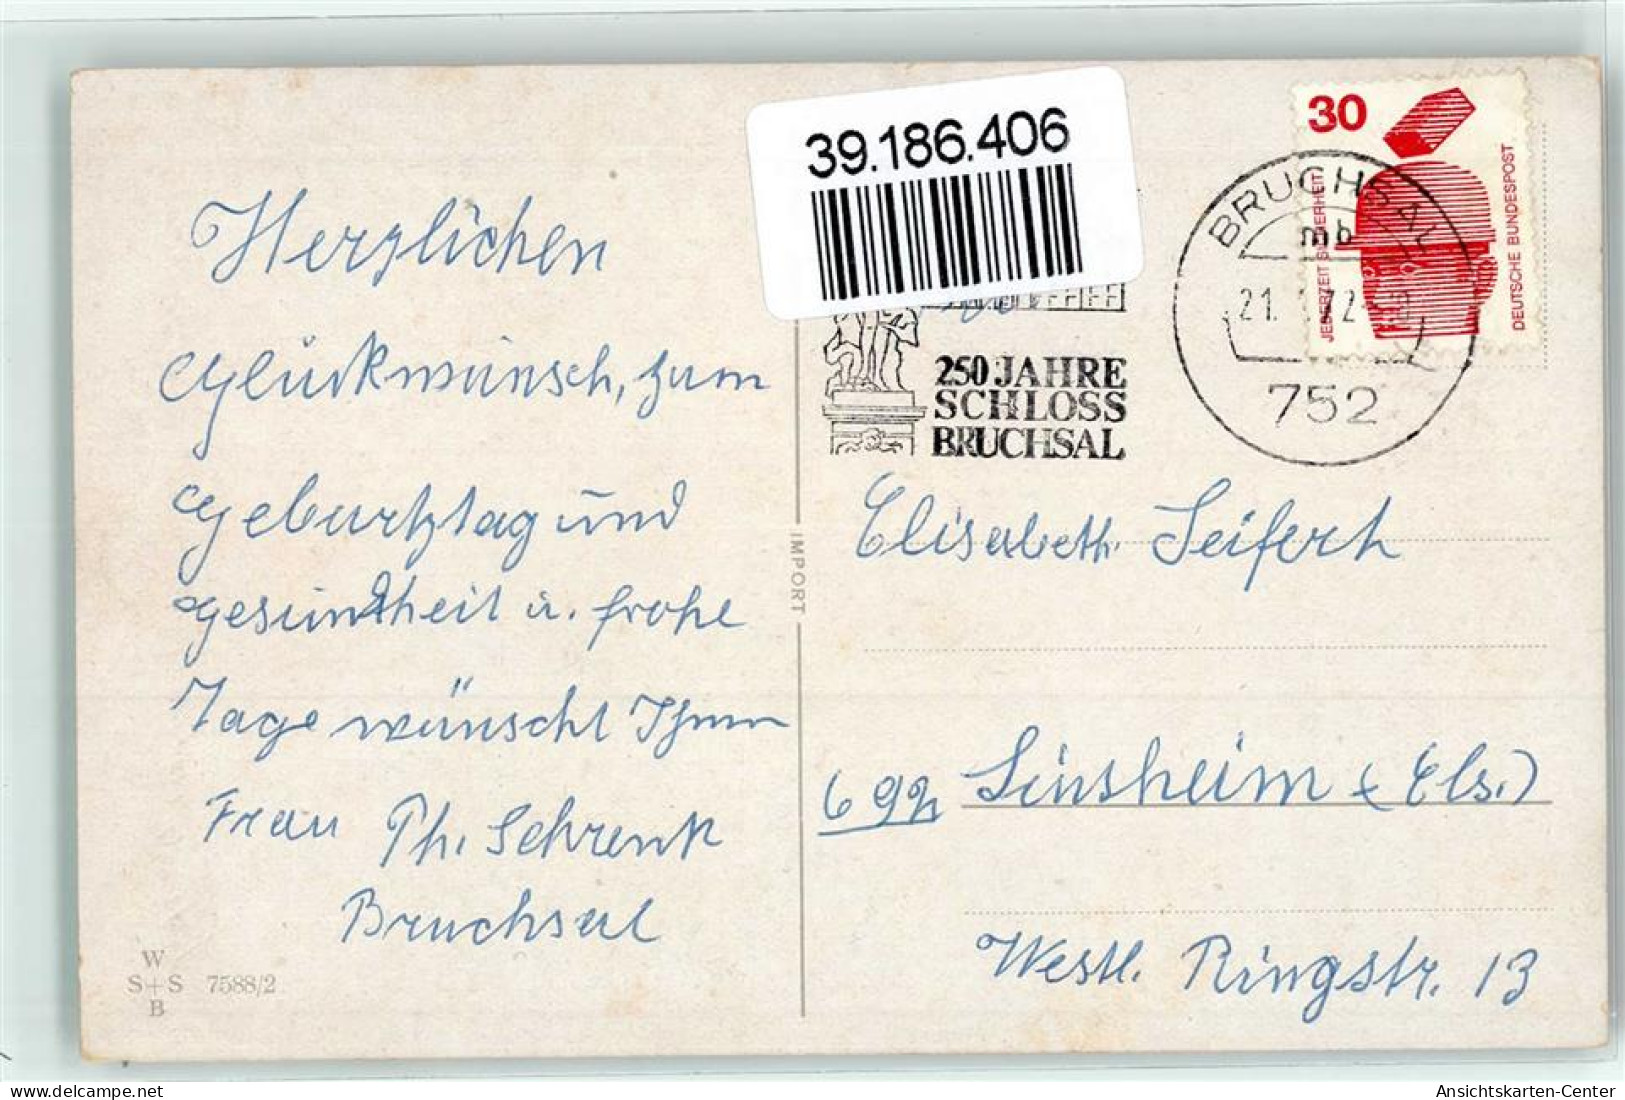 Herzlichen
Glückwünsch, zum
Geburtztag und
gesundheit u. frohe
Tage wünscht Ihnen
Frau Ph. Schrenk
Bruchsal
W
S+S 7588/2
B
IMPORT
39.186.406
250 JAHRE
SCHLOSS
BRUCHSAL
30
JEDERZEIT SICHERHEIT
DEUTSCHE BUNDESPOST
BRUCHSAL
mb
21. 72
752
Elisabeth Seifert
692 Sinsheim (Els.)
Westl. Ringstr. 13
Ansichtskarten-Center
www.delcampe.net